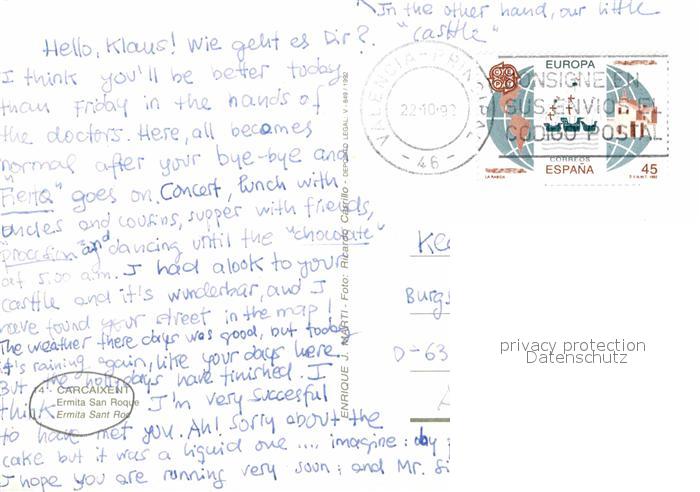 In the other hand, our little
"castle"
Hello, Klaus! Wie geht es Dir?
I think you'll be better today
than Friday in the hands of
the doctors. Here, all becomes
normal after your bye-bye and
"Fieria" goes on. Concert, lunch with
uncles and cousins, supper with friends,
"procession" and dancing until the "chocolate"
at 5:00 a.m. I had a look to your
castle and it's wunderbar, and I
have found your street in the map!
The weather there days was good, but today
it's raining again, like your days here.
But the hollydays have finished. I
think I'm very succesful
to have met you. Ah! Sorry about the
cake but it was a liquid one .... imagine: day
I hope you are running very soon; and Mr. Si
14. CARCAIXENT
Ermita San Roque
Ermita Sant Roc
ENRIQUE J. MARTI - Foto: Ricardo Carrillo - DEPOSITO LEGAL: V - 849 / 1992
VALENCIA-PRINCIPAL
22-10-92
- 46 -
CONSIGNE EN
SUS ENVIOS EL
CODIGO POSTAL
EUROPA
CORREOS
ESPAÑA
45
LA RABIDA
F.N.M.T. 1992
Kl
Burgs
D-63
privacy protection
Datenschutz